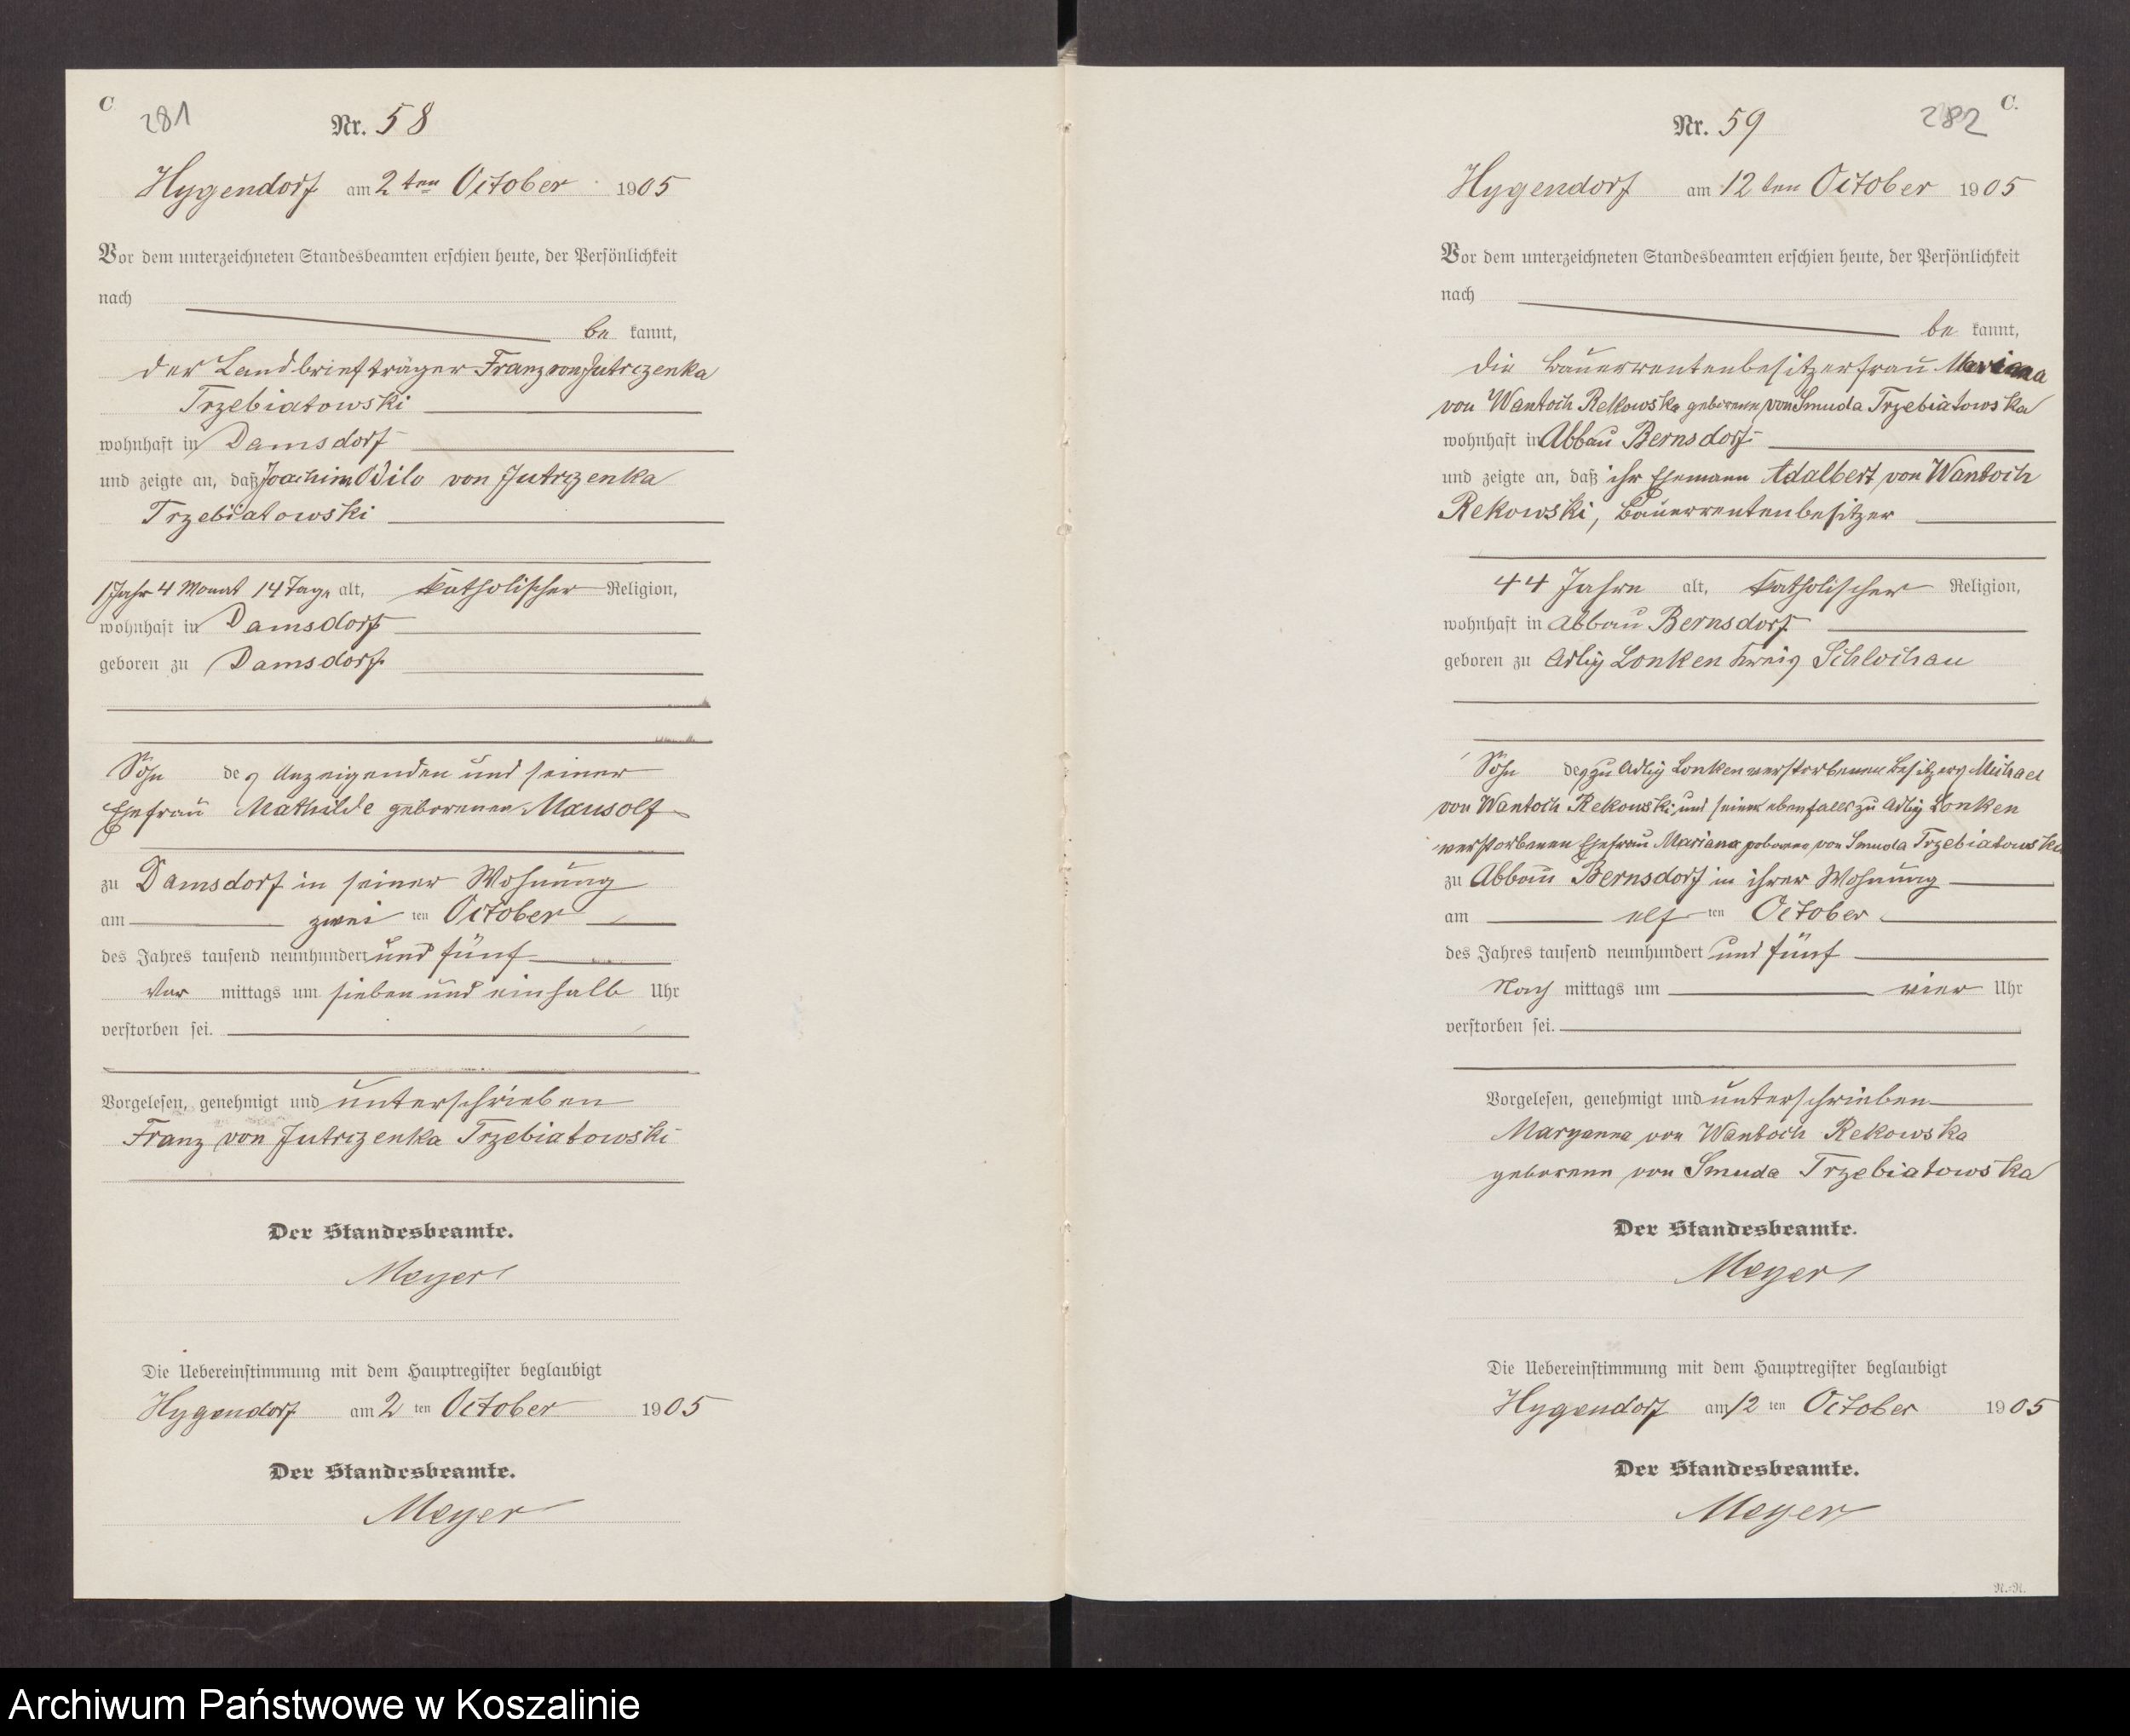 C
281
Nr. 58
Hygendorf am 2ten October 1905
Vor dem unterzeichneten Standesbeamten erschien heute, der Persönlichkeit
nach
be kannt,
der Landbriefträger Franz von Jutrzenka
Trzebiatowski
wohnhaft in Damsdorf
und zeigte an, daß Joachim Wilo von Jutrzenka
Trzebiatowski
1 Jahr 4 Monat 14 Tage alt, katholischer Religion,
wohnhaft in Damsdorf
geboren zu Damsdorf
Sohn des Anzeigenden und seiner
Ehefrau Mathilde geborenen Mausolf
zu Damsdorf in seiner Wohnung
am zwei ten October
des Jahres tausend neunhundert und fünf
Vor mittags um sieben und einhalb Uhr
verstorben sei.
Vorgelesen, genehmigt und unterschrieben
Franz von Jutrzenka Trzebiatowski
Der Standesbeamte.
Meyer
Die Uebereinstimmung mit dem Hauptregister beglaubigt
Hygendorf am 2 ten October 1905
Der Standesbeamte.
Meyer
282
C.
Nr. 59
Hygendorf am 12ten October 1905
Vor dem unterzeichneten Standesbeamten erschien heute, der Persönlichkeit
nach
be kannt,
die Bauerrentenbesitzerfrau Marianna
von Wantoch Rekowska geborene von Smuda Trzebiatowska
wohnhaft in Abbau Bernsdorf
und zeigte an, daß ihr Ehemann Adalbert von Wantoch
Rekowski, Bauerrentenbesitzer
44 Jahre alt, katholischer Religion,
wohnhaft in Abbau Bernsdorf
geboren zu Adlig Lonken Kreis Schlochau
Sohn des zu Adlig Lonken verstorbenen Besitzers Michael
von Wantoch Rekowski und seiner ebenfalls zu Adlig Lonken
verstorbenen Ehefrau Mariana geborene von Smuda Trzebiatowska
zu Abbau Bernsdorf in ihrer Wohnung
am elf ten October
des Jahres tausend neunhundert und fünf
Nach mittags um vier Uhr
verstorben sei.
Vorgelesen, genehmigt und unterschrieben
Maryanna von Wantoch Rekowska
geborene von Smuda Trzebiatowska
Der Standesbeamte.
Meyer
Die Uebereinstimmung mit dem Hauptregister beglaubigt
Hygendorf am 12 ten October 1905
Der Standesbeamte.
Meyer
N.=N.
Archiwum Państwowe w Koszalinie